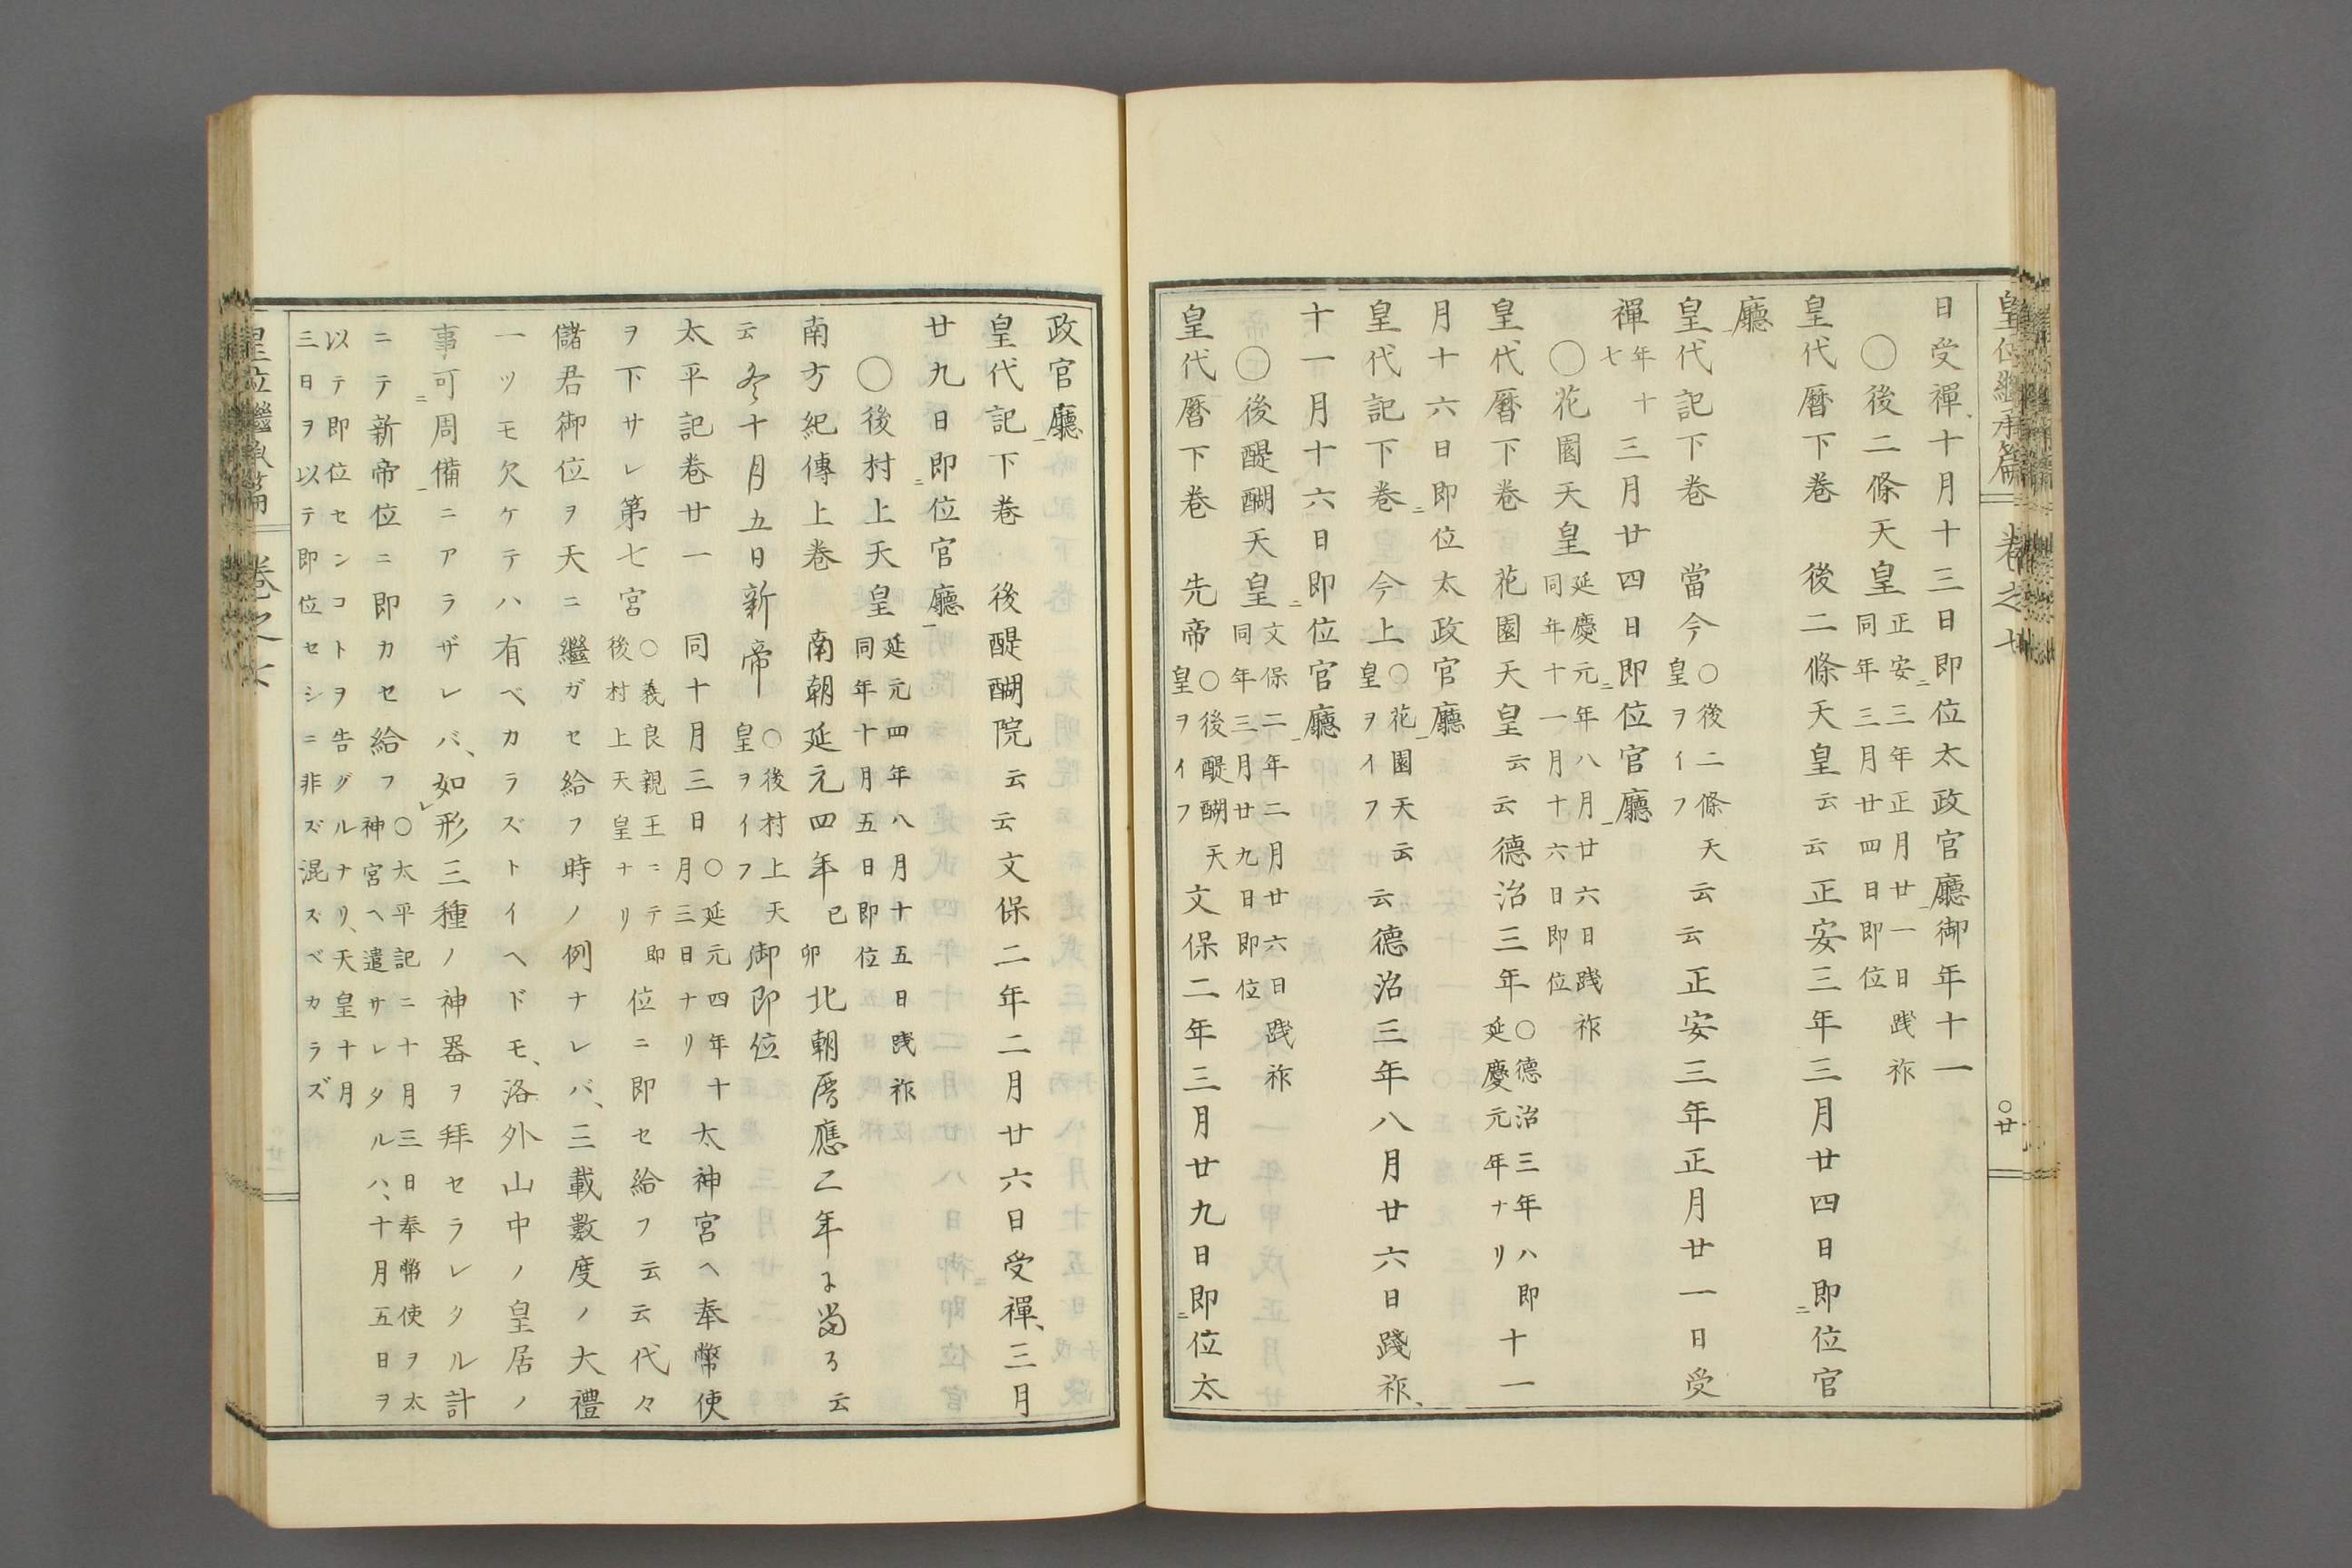 皇位繼承篇 卷之七 ○廿
日受禪、十月十三日即二位太政官廳一御年十一
○後二條天皇 正安三年正月廿一日踐祚 同年三月廿四日即位
皇代曆下卷 後二條天皇云云正安三年三月廿四日即二位官
廳一
皇代記下卷 當今 ○後二條天皇ヲイフ 云云正安三年正月廿一日受
禪 年十七 三月廿四日即二位官廳一
○花園天皇 延慶元年八月廿六日踐祚 同年十一月十六日即位
皇代曆下卷 花園天皇云云德治三年 ○德治三年ハ即延慶元年ナリ 十一
月十六日即二位太政官廳一
皇代記下卷 今上 ○花園天皇ヲイフ 云云德治三年八月廿六日踐祚、
十一月十六日即二位官廳一
○後醍醐天皇 文保二年二月廿六日踐祚 同年三月廿九日即位
皇代曆下卷 先帝 ○後醍醐天皇ヲイフ 文保二年三月廿九日即二位太
政官廳一
皇代記下卷 後醍醐院云云文保二年二月廿六日受禪、三月
廿九日即二位官廳一
○後村上天皇 延元四年八月十五日踐祚 同年十月五日即位
南方紀傳上卷 南朝延元四年 己卯 北朝曆應二年に當る云
云冬十月五日新帝 ○後村上天皇ヲイフ 御即位
太平記卷廿一 同十月三日 ○延元四年十月三日ナリ 太神宮ヘ奉幣使
ヲ下サレ第七宮 ○義良親王ニテ即後村上天皇ナリ 位ニ即セ給フ云云代々
儲君御位ヲ天ニ繼ガセ給フ時ノ例ナレバ、三載數度ノ大禮
一ツモ欠ケテハ有ベカラズトイヘドモ、洛外山中ノ皇居ノ
事可二周備一ニアラザレバ、如レ形三種ノ神器ヲ拜セラレタル計
ニテ新帝位ニ即カセ給フ ○太平記ニ十月三日奉幣使ヲ太神宮ヘ遣サレタルハ、十月五日ヲ
以テ即位センコトヲ告グルナリ、天皇十月
三日ヲ以テ即位セシニ非ズ混ズベカラズ
皇位繼承篇 卷之七